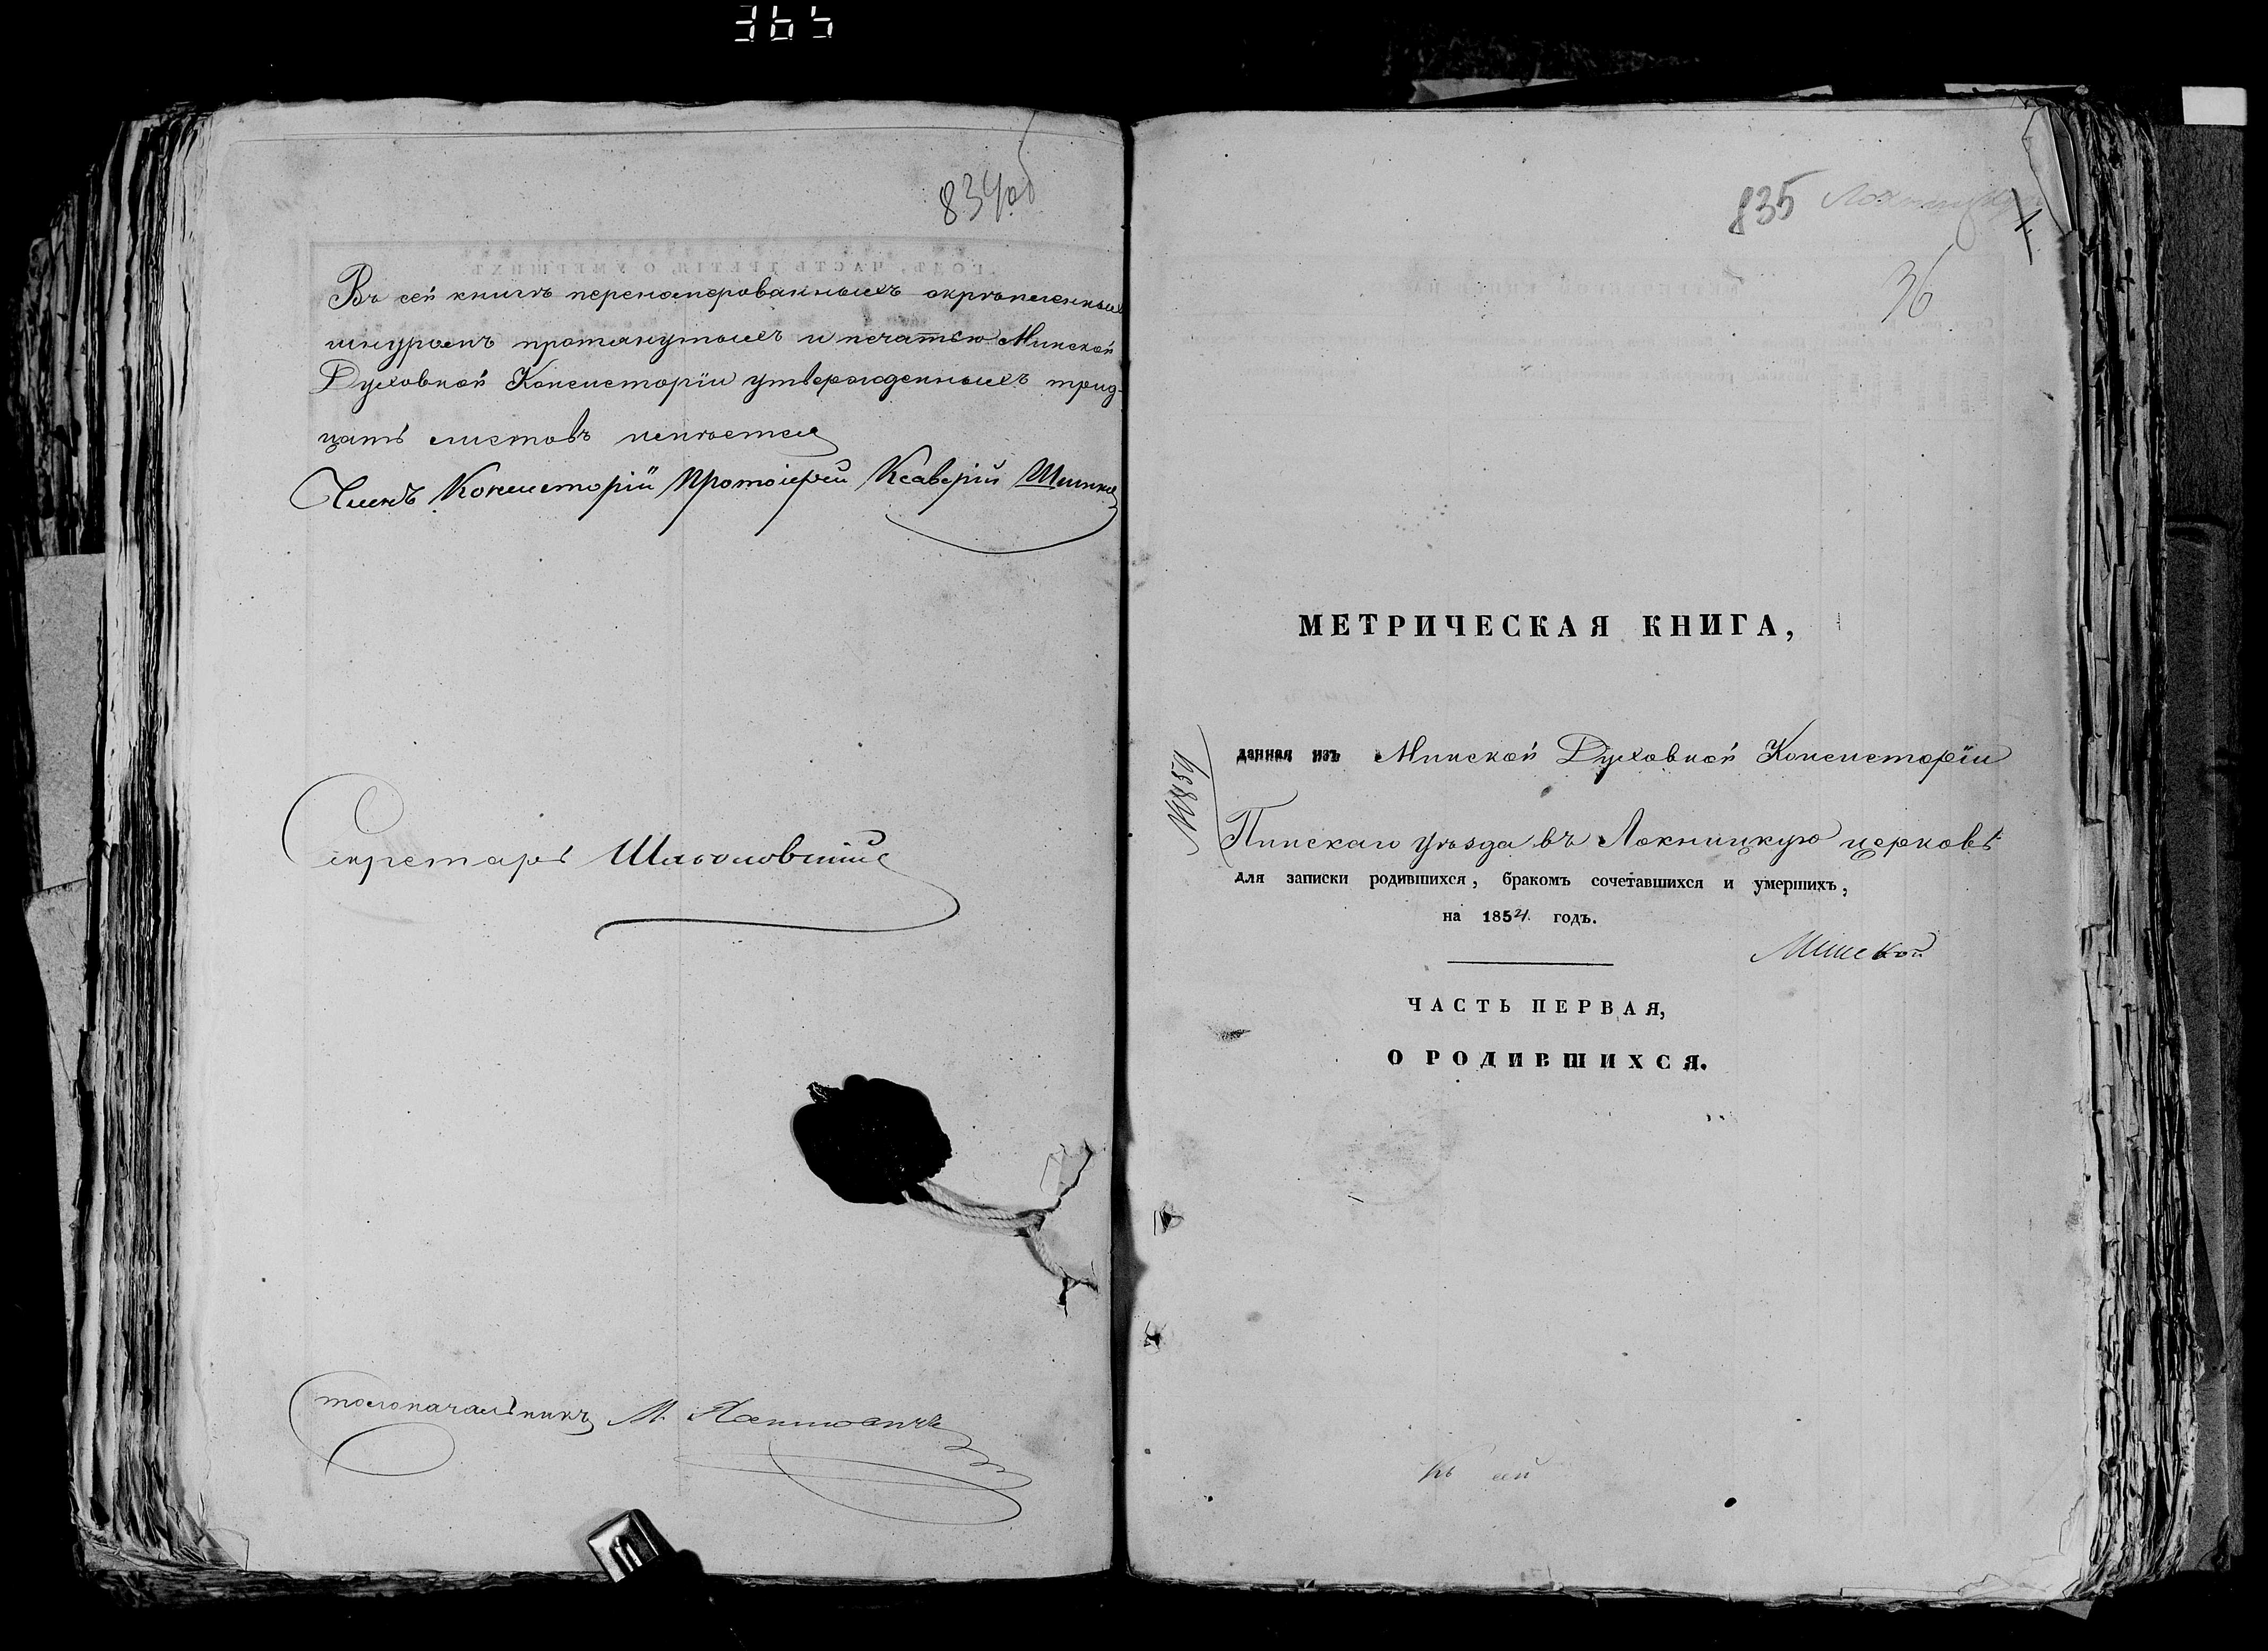 365
834об
Въ сей книгѣ переномерованныхъ скрѣпленныхъ
шнуромъ протянутыхъ и печатью Минской
Духовной Консисторіи утвержденныхъ трид-
цать листовъ имѣется
Членъ Консисторіи Протоіерей Ксаверій
Секретарь
Столоначальникъ М.
835
1.
36
МЕТРИЧЕСКАЯ КНИГА,
данная изъ Минской Духовной Консисторіи
Пинскаго уѣзда въ Локницкую церковь
для записки родившихся, бракомъ сочетавшихся и умершихъ,
на 1854 годъ.
Минской
ЧАСТЬ ПЕРВАЯ,
О РОДИВШИХСЯ.